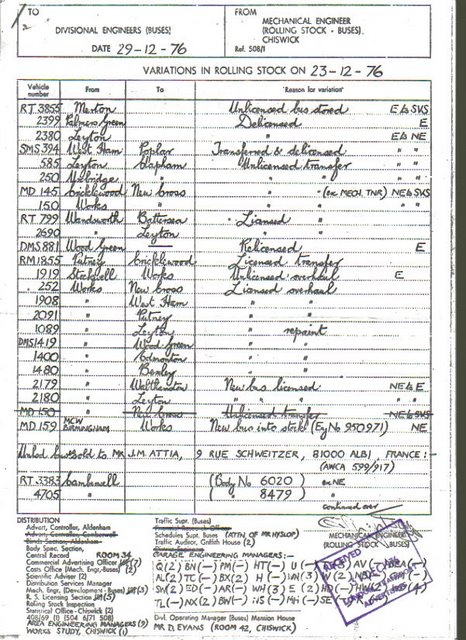 TO
DIVISIONAL ENGINEERS (BUSES)
DATE 29-12-76
FROM
MECHANICAL ENGINEER
(ROLLING STOCK - BUSES)
CHISWICK
Ref. 508/1
VARIATIONS IN ROLLING STOCK ON 23-12-76
Vehicle number From To Reason for variation
RT 3855 Merton Unlicensed bus stored E & SVS
2399 Palmers Green Delicensed E
2380 Leyton " E & NE
SMS 394 West Ham Poplar Transferred & delicensed " "
585 Leyton Clapham Unlicensed transfer " "
250 Uxbridge " " " " "
MD 145 Cricklewood New Cross " " (ex MECH. TNR) NE & SVS
150 Works " " " " "
RT 799 Wandsworth Battersea Licensed "
2690 " Leyton " "
DMS 881 Wood Green — Relicensed E
RM 1855 Putney Cricklewood Licensed transfer
1919 Stockwell Works Unlicensed overhaul E
252 Works New Cross Licensed overhaul
1908 " West Ham " "
2091 " Putney " "
1089 " Leyton " repaint
DMS 1419 " Wood Green " "
1400 " Edmonton " "
1480 " Bexley " "
2179 " Walthamstow New bus licensed NE & E
2180 " Leyton " " " "
MD 150 " New Cross Unlicensed transfer NE & SVS
MD 159 MCW BIRMINGHAM Works New bus into stock (Eng No 950971) NE
Unlsd bus sold to MR J.M. ATTIA, 9 RUE SCHWEITZER, 81000 ALBI, FRANCE :-
(AWCA 599/917)
RT 3383 Camberwell (Body No 6020) ex NE
4705 " ( " 8479 ) "
continued over
DISTRIBUTION
Advert. Controller, Aldenham
Advert. Controller, Camberwell
Body Spec. Section,
Central Record ROOM 34
Commercial Advertising Officer
Costs Office (Mech. Eng. Buses) (2)
Scientific Adviser (2)
Distribution Services Manager
Mech. Engr. (Development - Buses)
R. S. Licensing Section
Rolling Stock Inspection
Statistical Office - Chiswick (2)
408/69 (1) 504 6/71 508)
AREA ENGINEERING MANAGERS (9)
WORKS STUDY, CHISWICK (1)
Traffic Supt. (Buses)
Schedules Supt. Buses (ATTN OF MR HYSLOP)
Traffic Auditor, Griffith House (2)
GARAGE ENGINEERING MANAGERS:-
Divl. Operating Manager (Buses) Mansion House
MR D. EVANS (ROOM 42, CHISWICK)
MECHANICAL ENGINEER
(ROLLING STOCK - BUSES)